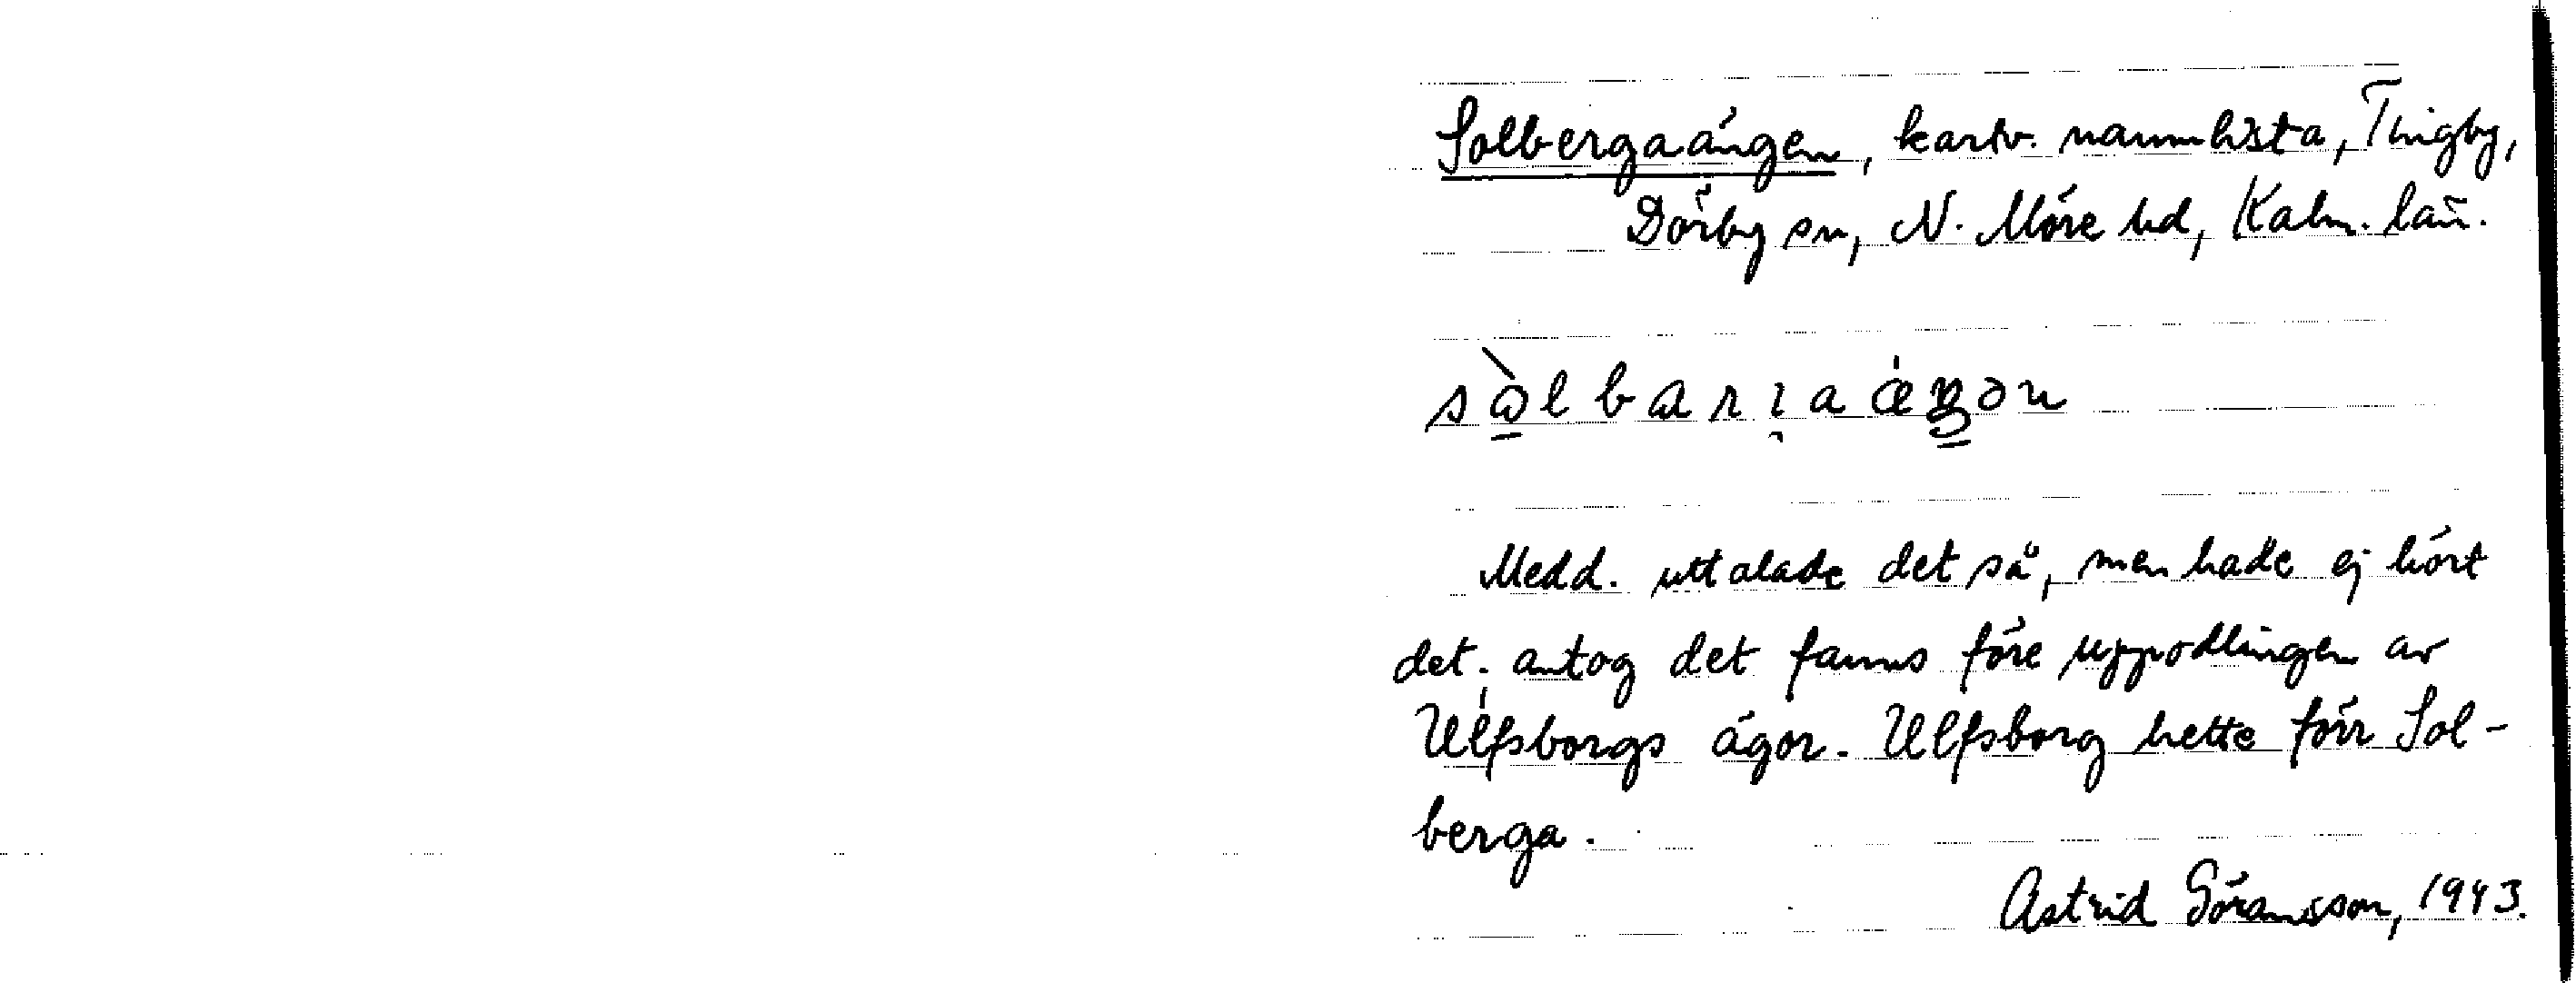 Solbergaängen, kartv. namnlista, Tingby,
Dörby sn, N. Möre hd, Kalm. län.
Medd. uttalade det så, men hade ej hört
det; antog det fanns före uppodlingen av
Ulfsborgs ägor. Ulfsborg hette förr Sol-
berga.
Astrid Göransson, 1943.